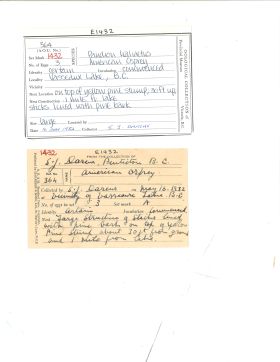 E1432
364
Pandion haliaetus
1432
American Osprey
No. of Eggs 3
Identity certain Incubation commenced
Vaseaux Lake, B.C.
Nest Location on top of yellow pine stump, 30 ft up
Nest Construction 1 mile fr. lake
sticks lined with pine bark
Size large
Date 16 May 1932 Collector S. J. Darcus
1432 E1432
FROM THE COLLECTION OF
S. J. Darcus Penticton B.C.
American Osprey
364
Collected by S. J. Darcus on May 16-1932
vicinity of Vasseaux Lake B.C.
No. of eggs in set 3 Set mark A
Identity certain Incubation commenced
Nest Large structure of sticks lined
with pine bark on top of yellow
Pine stump about 30 ft from ground
and 1 mile from lake.